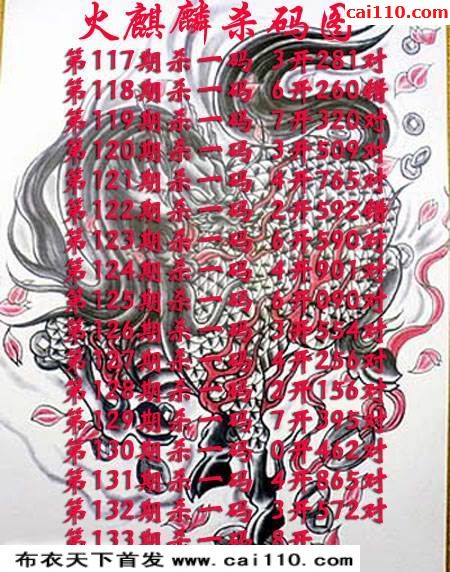 cai110.com
火麒麟杀码图
第117期杀一码 3开281对
第118期杀一码 6开260错
第119期杀一码 7开320对
第120期杀一码 3开509对
第121期杀一码 4开765对
第122期杀一码 2开592错
第123期杀一码 6开590对
第124期杀一码 4开901对
第125期杀一码 6开090对
第126期杀一码 3开554对
第127期杀一码 4开256对
第128期杀一码 2开156对
第129期杀一码 7开395对
第130期杀一码 0开462对
第131期杀一码 4开865对
第132期杀一码 3开572对
第133期杀一码 8开
布衣天下首发 www.cai110.com